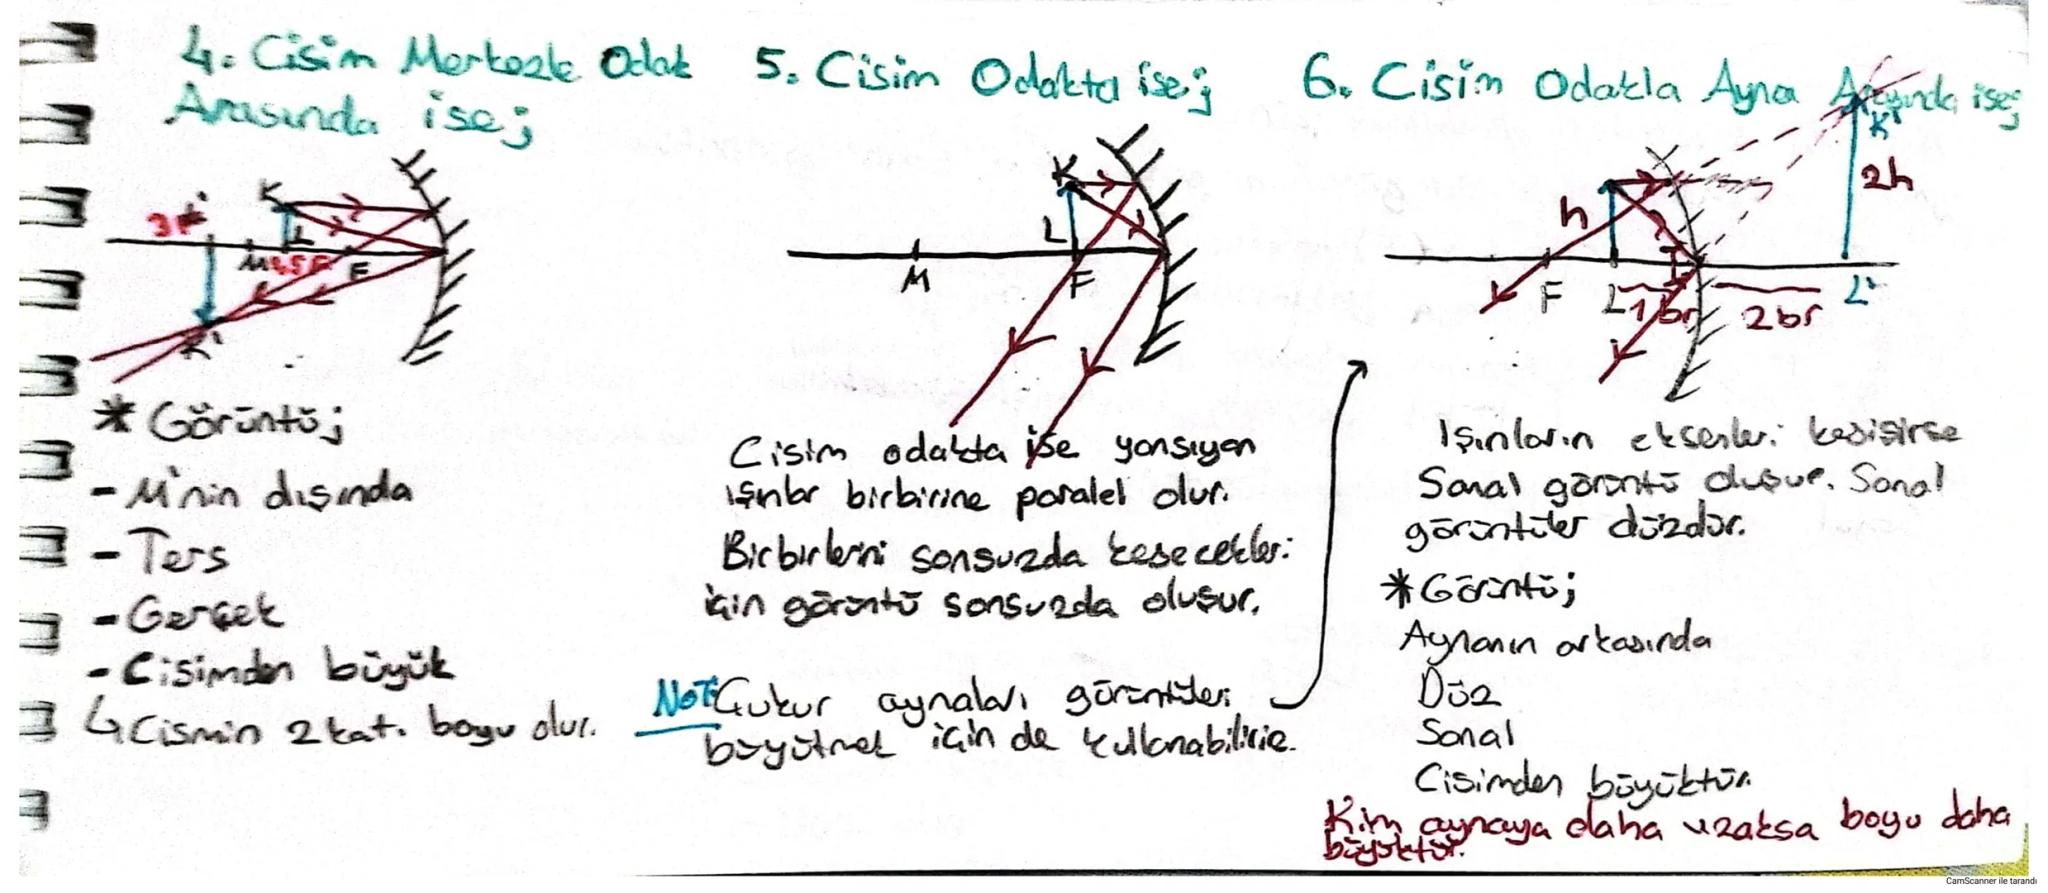 4. Cisim Merkezle Odak
Arasında ise;
3f
K
L
M
1,5f
F
K'
* Görüntü;
- M'nin dışında
- Ters
- Gerçek
- Cisimden büyük
↳ Cismin 2 katı boyu olur.
5. Cisim Odakta ise;
K
L
M
F
Cisim odakta ise yansıyan
ışınlar birbirine paralel olur.
Birbirlerini sonsuzda kesecekleri
için görüntü sonsuzda oluşur.
NOT: Çukur aynaları görüntüleri
büyütmek için de kullanabiliriz.
6. Cisim Odakla Ayna Arasında ise;
K'
2h
h
F
L
1br
2br
L'
Işınların eksenleri kesişirse
Sanal görüntü oluşur. Sanal
görüntüler düzdür.
* Görüntü;
Aynanın arkasında
Düz
Sanal
Cisimden büyüktür.
Kim aynaya daha uzaksa boyu daha
büyüktür.
CamScanner ile tarandı